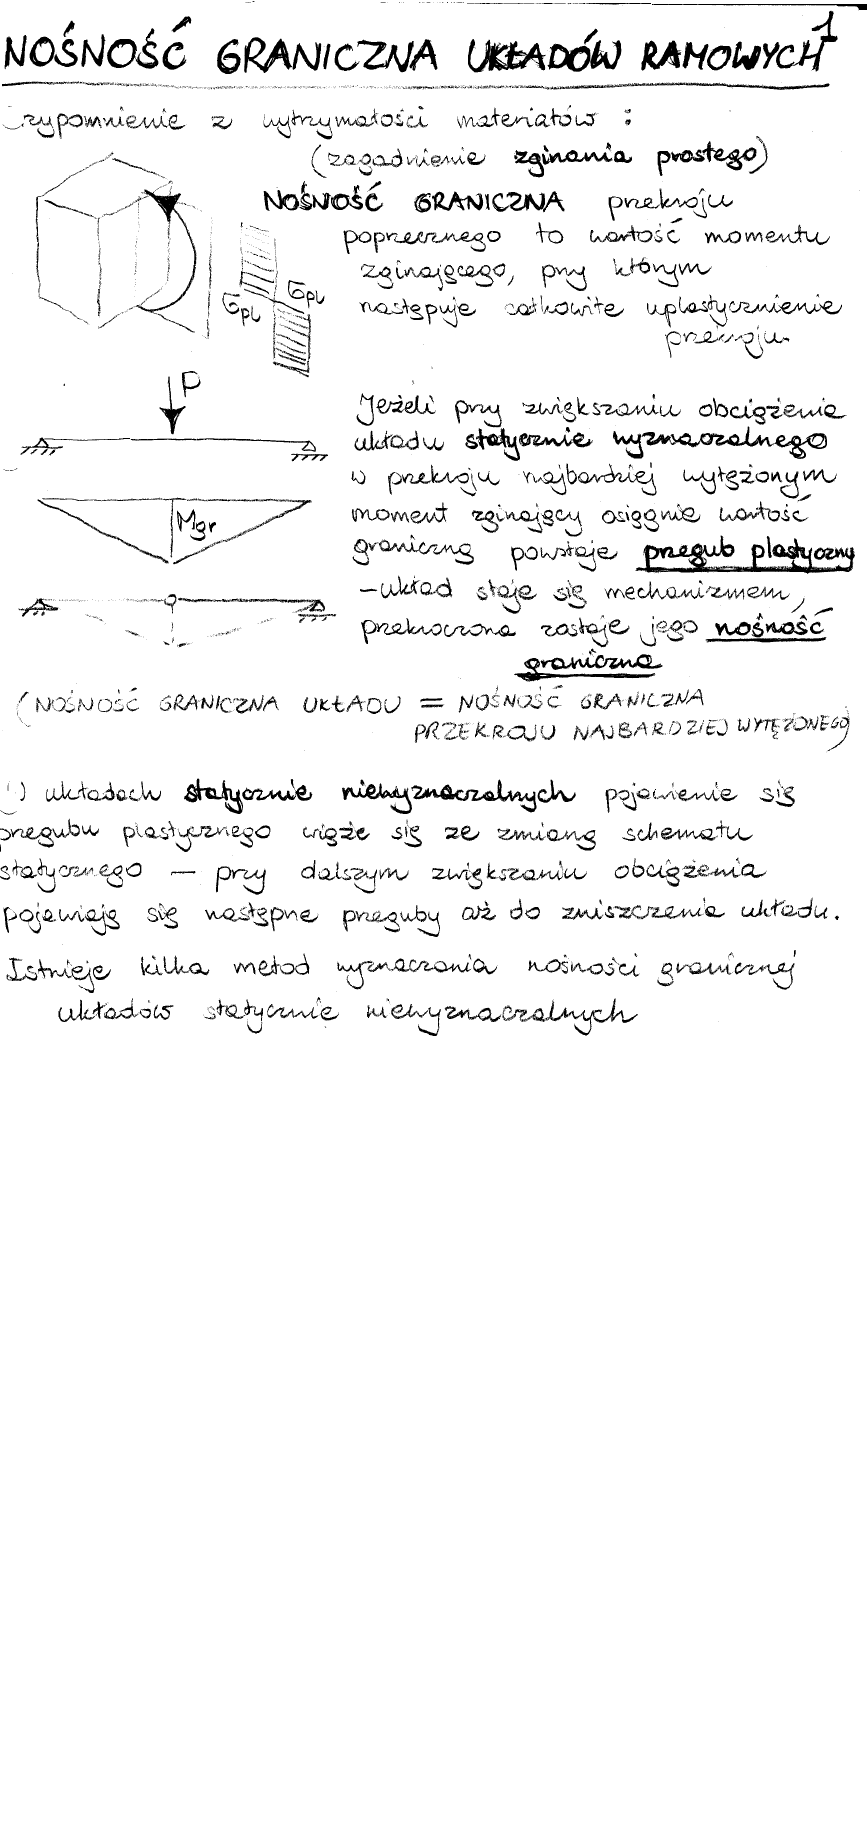 1
NOŚNOŚĆ GRANICZNA UKŁADÓW RAMOWYCH
rzypomnienie z wytrzymałości materiałów :
(zagadnienie zginania prostego)
NOŚNOŚĆ GRANICZNA przekroju
poprzecznego to wartość momentu
zginającego, przy którym
następuje całkowite uplastycznienie
przekroju.
σpl σpl
P
Jeżeli przy zwiększaniu obciążenia
układu statycznie wyznaczalnego
w przekroju najbardziej wytężonym
moment zginający osiągnie wartość
graniczną powstaje przegub plastyczny
Mgr
-układ staje się mechanizmem,
przekroczona zostaje jego nośność
graniczna
(NOŚNOŚĆ GRANICZNA UKŁADU = NOŚNOŚĆ GRANICZNA
PRZEKROJU NAJBARDZIEJ WYTĘŻONEGO)
układach statycznie niewyznaczalnych pojawienie się
przegubu plastycznego wiąże się ze zmianą schematu
statycznego — przy dalszym zwiększaniu obciążenia
pojawiają się następne przeguby aż do zniszczenia układu.
Istnieje kilka metod wyznaczania nośności granicznej
układów statycznie niewyznaczalnych